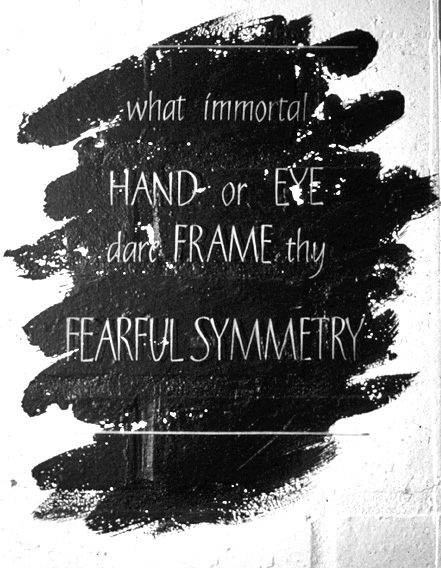 what immortal
HAND or EYE
dare FRAME thy
FEARFUL SYMMETRY